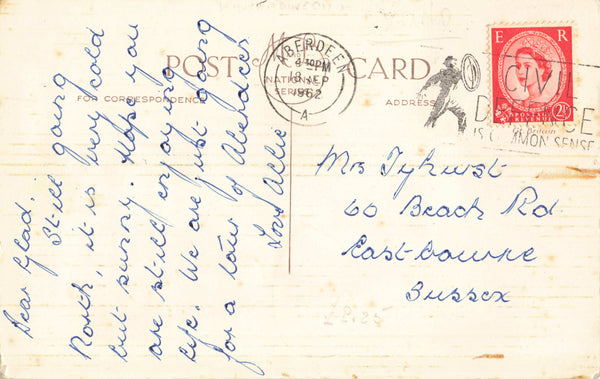 POST CARD
NATIONAL
SERIES
FOR CORRESPONDENCE
ADDRESS
Dear Glad,
Still going
North, it is very cold
but sunny. Hope you
are still enjoying
life. We are just going
for a tour of Aberdeen
Love Allie
ABERDEEN
PM
18 SEP
1962
A
CIVIL
DEFENCE
IS COMMON SENSE
E R
POSTAGE
REVENUE
2½D
Mrs Tyhurst
60 Beach Rd
East-bourne
Sussex
£2.25